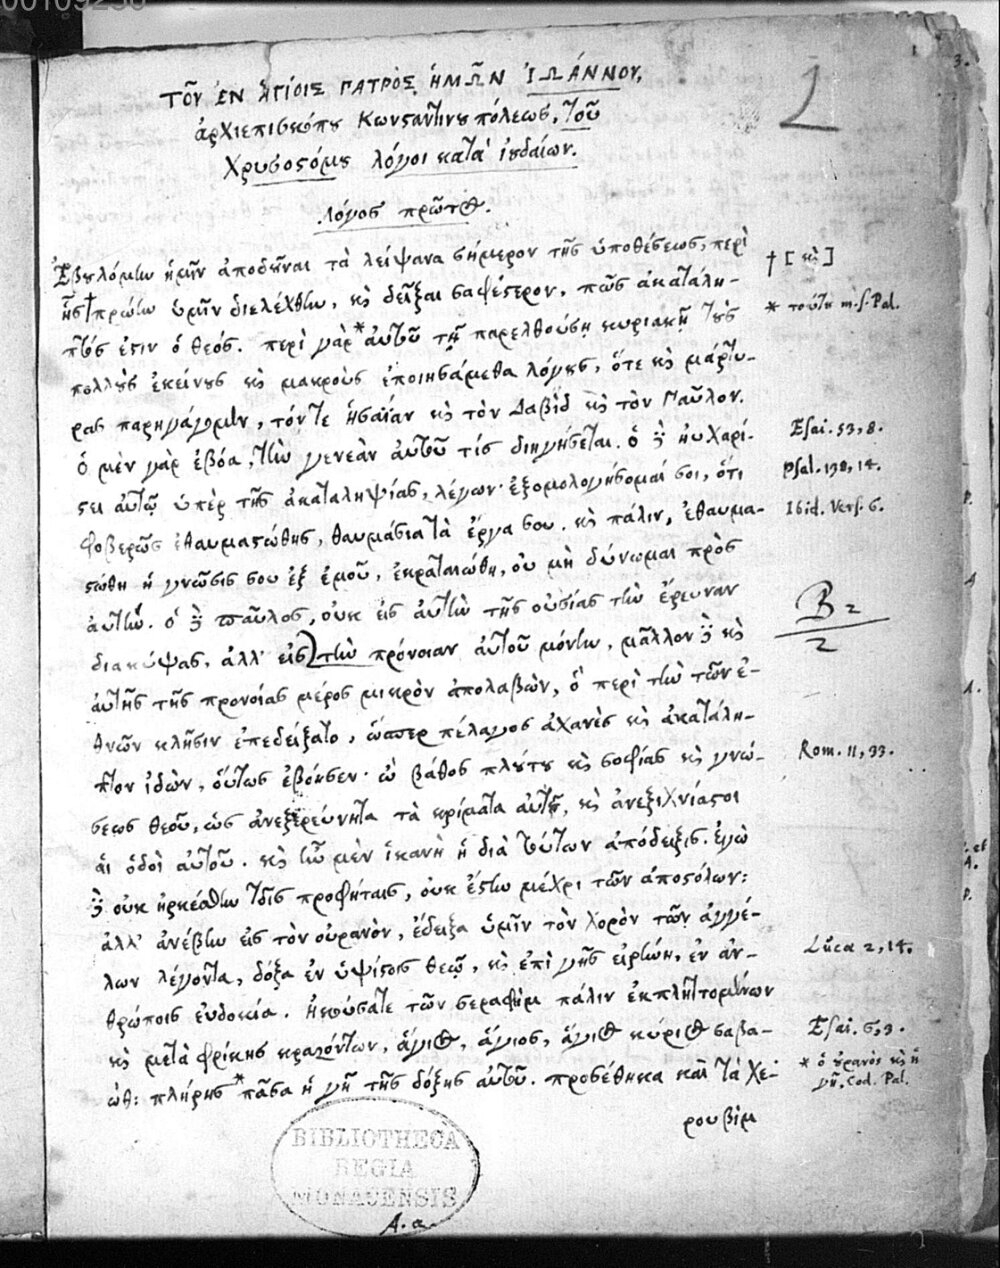 00109230
3.
ΤΟΥ͂ ἘΝ ἉΓΊΟΙΣ ΠΑΤΡῸΣ ἩΜΩ͂Ν ἸΩΆΝΝΟΥ,
ἀρχιεπισκόπου Κωνσταντίνου πόλεως, τοῦ
Χρυσοστόμου λόγοι κατὰ ἰουδαίων.
Λόγος πρῶτος.
Ἐβουλόμην ἡμῖν ἀποδοῦναι τὰ λείψανα σήμερον τῆς ὑποθέσεως, περὶ
ἧς † πρώην ὑμῖν διελέχθην, καὶ δεῖξαι σαφέστερον, πῶς ἀκατάλη-
πτός ἐστιν ὁ θεός. περὶ γὰρ * αὐτοῦ τῇ παρελθούσῃ κυριακῇ τοὺς
πολλοὺς ἐκείνους καὶ μακροὺς ἐποιησάμεθα λόγους, ὅτε καὶ μάρτυ-
ρας παρηγάγομεν, τόν τε ἡσαΐαν καὶ τὸν Δαβὶδ καὶ τὸν Παῦλον.
ὁ μὲν γὰρ ἐβόα, τὴν γενεὰν αὐτοῦ τίς διηγήσεται. ὁ δὲ ηὐχαρί-
στει αὐτῷ ὑπὲρ τῆς ἀκαταληψίας, λέγων· ἐξομολογήσομαί σοι, ὅτι
φοβερῶς ἐθαυμαστώθης, θαυμάσια τὰ ἔργα σου. καὶ πάλιν, ἐθαυμα-
στώθη ἡ γνῶσίς σου ἐξ ἐμοῦ, ἐκραταιώθη, οὐ μὴ δύνωμαι πρὸς
αὐτήν. ὁ δὲ παῦλος, οὐκ εἰς αὐτὴν τῆς οὐσίας τὴν ἔρευναν
διακύψας, ἀλλ' εἰς τὴν πρόνοιαν αὐτοῦ μόνην, μᾶλλον δὲ καὶ
αὐτῆς τῆς προνοίας μέρος μικρὸν ἀπολαβὼν, ὃ περὶ τὴν τῶν ἐ-
θνῶν κλῆσιν ἐπεδείξατο, ὥσπερ πέλαγος ἀχανὲς καὶ ἀκατάλη-
πτον ἰδὼν, οὕτως ἐβόησεν· ὦ βάθος πλούτου καὶ σοφίας καὶ γνώ-
σεως θεοῦ, ὡς ἀνεξερεύνητα τὰ κρίματα αὐτοῦ, καὶ ἀνεξιχνίαστοι
αἱ ὁδοὶ αὐτοῦ. καὶ ἦν μὲν ἱκανὴ ἡ διὰ τούτων ἀπόδειξις. ἐγὼ
δὲ οὐκ ἠρκέσθην τοῖς προφήταις, οὐκ ἔστην μέχρι τῶν ἀποστόλων:
ἀλλ' ἀνέβην εἰς τὸν οὐρανὸν, ἔδειξα ὑμῖν τὸν χορὸν τῶν ἀγγέ-
λων λέγοντα, δόξα ἐν ὑψίστοις θεῷ, καὶ ἐπὶ γῆς εἰρήνη, ἐν ἀν-
θρώποις εὐδοκία. ἠκούσατε τῶν σεραφὶμ πάλιν ἐκπληττομένων
καὶ μετὰ φρίκης κραζόντων, ἅγιος, ἅγιος, ἅγιος κύριος σαβα-
ώθ: πλήρης * πᾶσα ἡ γῆ τῆς δόξης αὐτοῦ. προσέθηκα καὶ τὰ Χε-
ρουβὶμ
† [καὶ]
* τούτου m.s. Pal.
Esai. 53, 8.
psal. 138, 14.
Ibid. vers. 6.
B 2
2
Rom. 11, 33.
Luca 2, 14.
Esai. 6, 3.
* ὁ οὐρανὸς καὶ ἡ
γῆ, Cod. Pal.
BIBLIOTHECA
REGIA
MONACENSIS
A.a